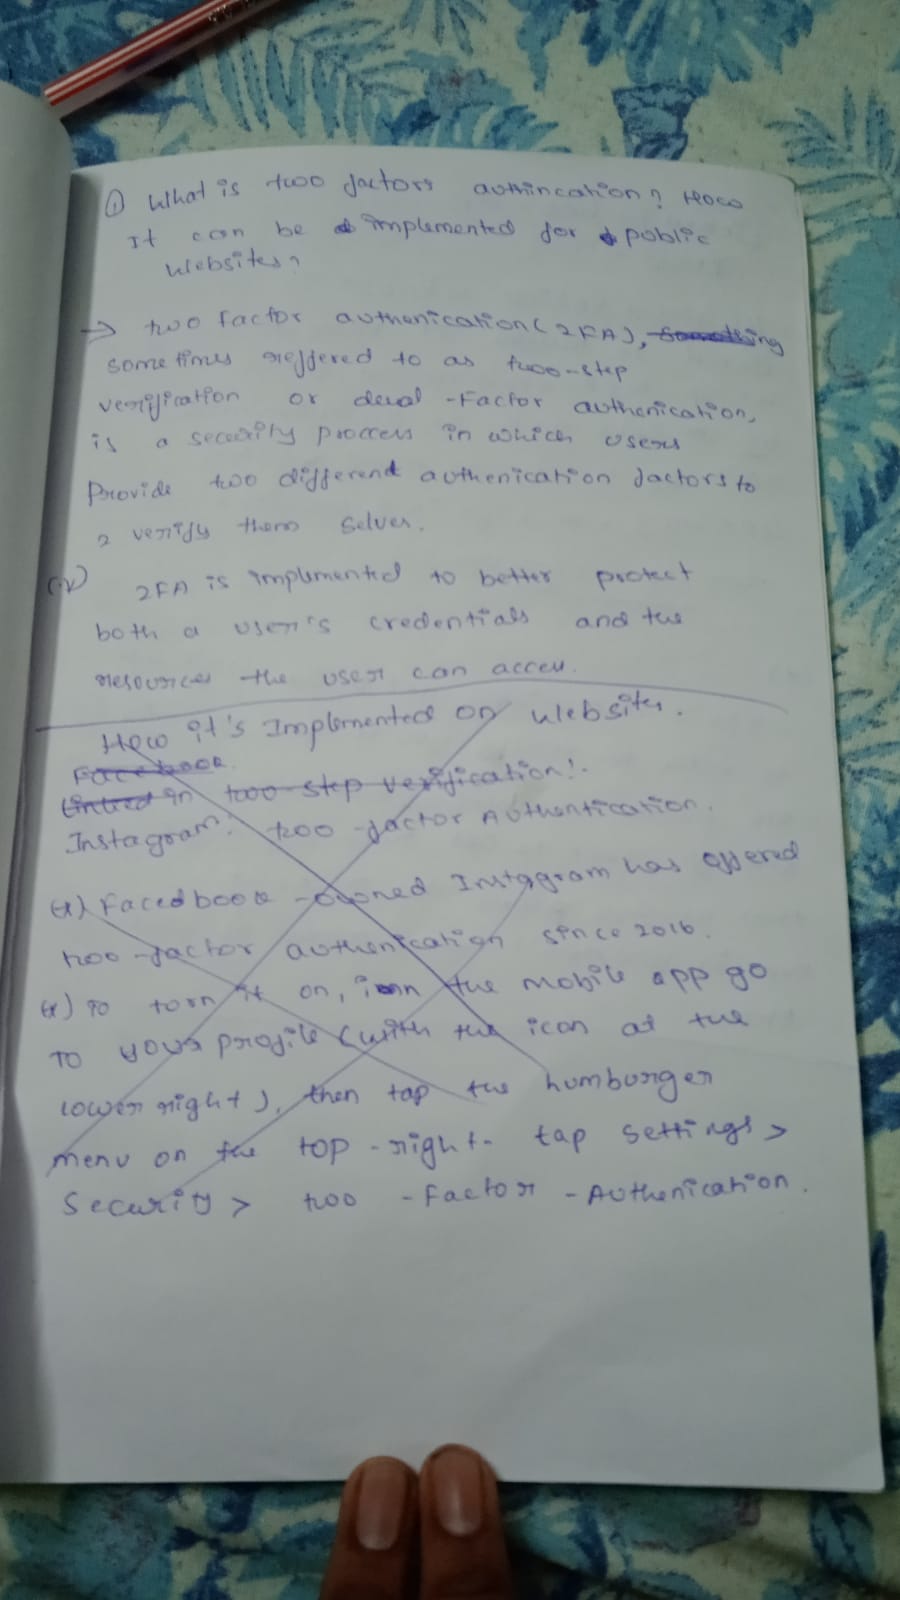 ① What is two factors authincation? How
It can be implemented for public
Websites?
→ two factor authenication (2FA), something
some times reffered to as two-step
verification or dual -Factor authenication,
is a security proccess in which users
Provide two differend authenication factors to
2 verify them selves.
2FA is implmented to better protect
both a user's credentials and the
resources the user can access.
How it's Implemented on Website.
Facebook
Linked in two step verification!.
Instagram: two -factor Authentication.
Facedbook -owned Instagram has offered
two -factor authenication since 2016.
to torn it on, in the mobile app go
TO your profile (with the icon at the
lower right), then tap the humburger
menu on the top -right. tap settings >
Security > two -Factor -Authenication.